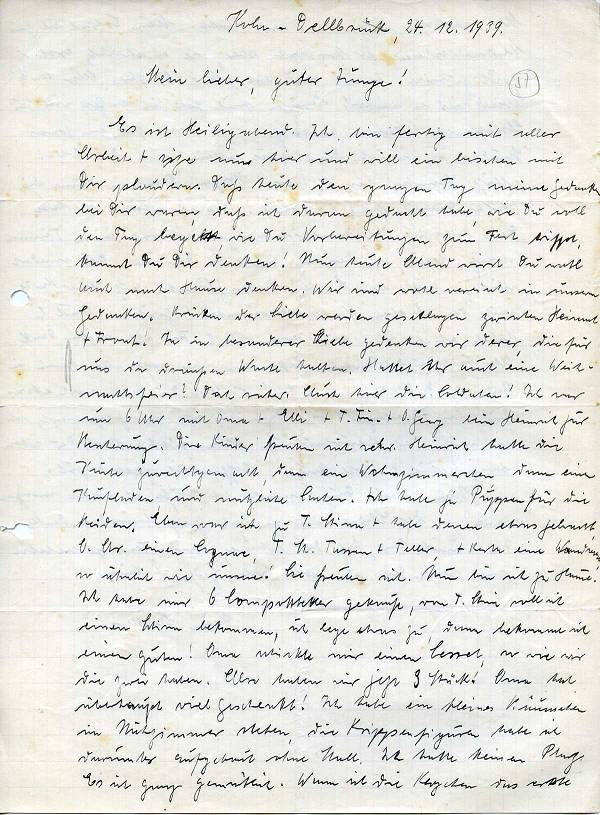 Köln - Dellbrück, 24. 12. 1939.
57
Mein lieber, guter Junge!
Es ist Heiligabend. Ich bin fertig mit aller
Arbeit + sitze nun hier und will ein bischen mit
Dir plaudern. Daß heute den ganzen Tag meine Gedanken
bei Dir waren, daß ich daran gedacht habe, wie Du wohl
den Tag wie Du Vorbereitungen zum Fest triffst,
kannst Du Dir denken! Nun heute Abend wirst Du wohl
auch nach Hause denken. Wir sind wohl vereint in unseren
Gedanken. Brücken der Liebe werden geschlagen zwischen Heimat
+ Front. In besonderer Liebe gedenken wir derer, die für
uns da draußen Wache halten. Hattet Ihr auch eine Weih-
nachtsfeier? Doch sicher. Auch hier die Soldaten! Ich war
um 6 Uhr mit Oma + Elli + T. + O. bei Heinrich zur
Bescherung. Die Kinder freuten sich sehr. Heinrich hatte die
zurechtgemacht, dann ein Wohnzimmerchen dann eine
Kaufladen und nützliche Sachen. Ich hatte ja Püppchen für die
Beiden. Eben war ich zu T. Stina + habe denen etwas gebracht,
O. einen Cognac, T. St. Tassen + Teller + eine
so ähnlich wie unsere! Sie freuten sich. Nun bin ich zu Hause.
Ich habe mir 6 Compotteller gekauft, von T. Stina soll ich
einen Schirm bekommen, ich lege etwas zu, dann bekomme ich
einen guten! Oma schickte mir einen Sessel, so wie wir
die zwei haben. Also haben wir jetzt 3 Stück! Oma hat
überhaupt viel geschenkt! Ich habe ein kleines Bäumchen
im Nähzimmer stehen, die Krippenfiguren habe ich
darunter aufgebaut ohne Stall. Ich hatte keinen Platz.
Es ist ganz gemütlich. Wenn ich die Kerzchen das erste